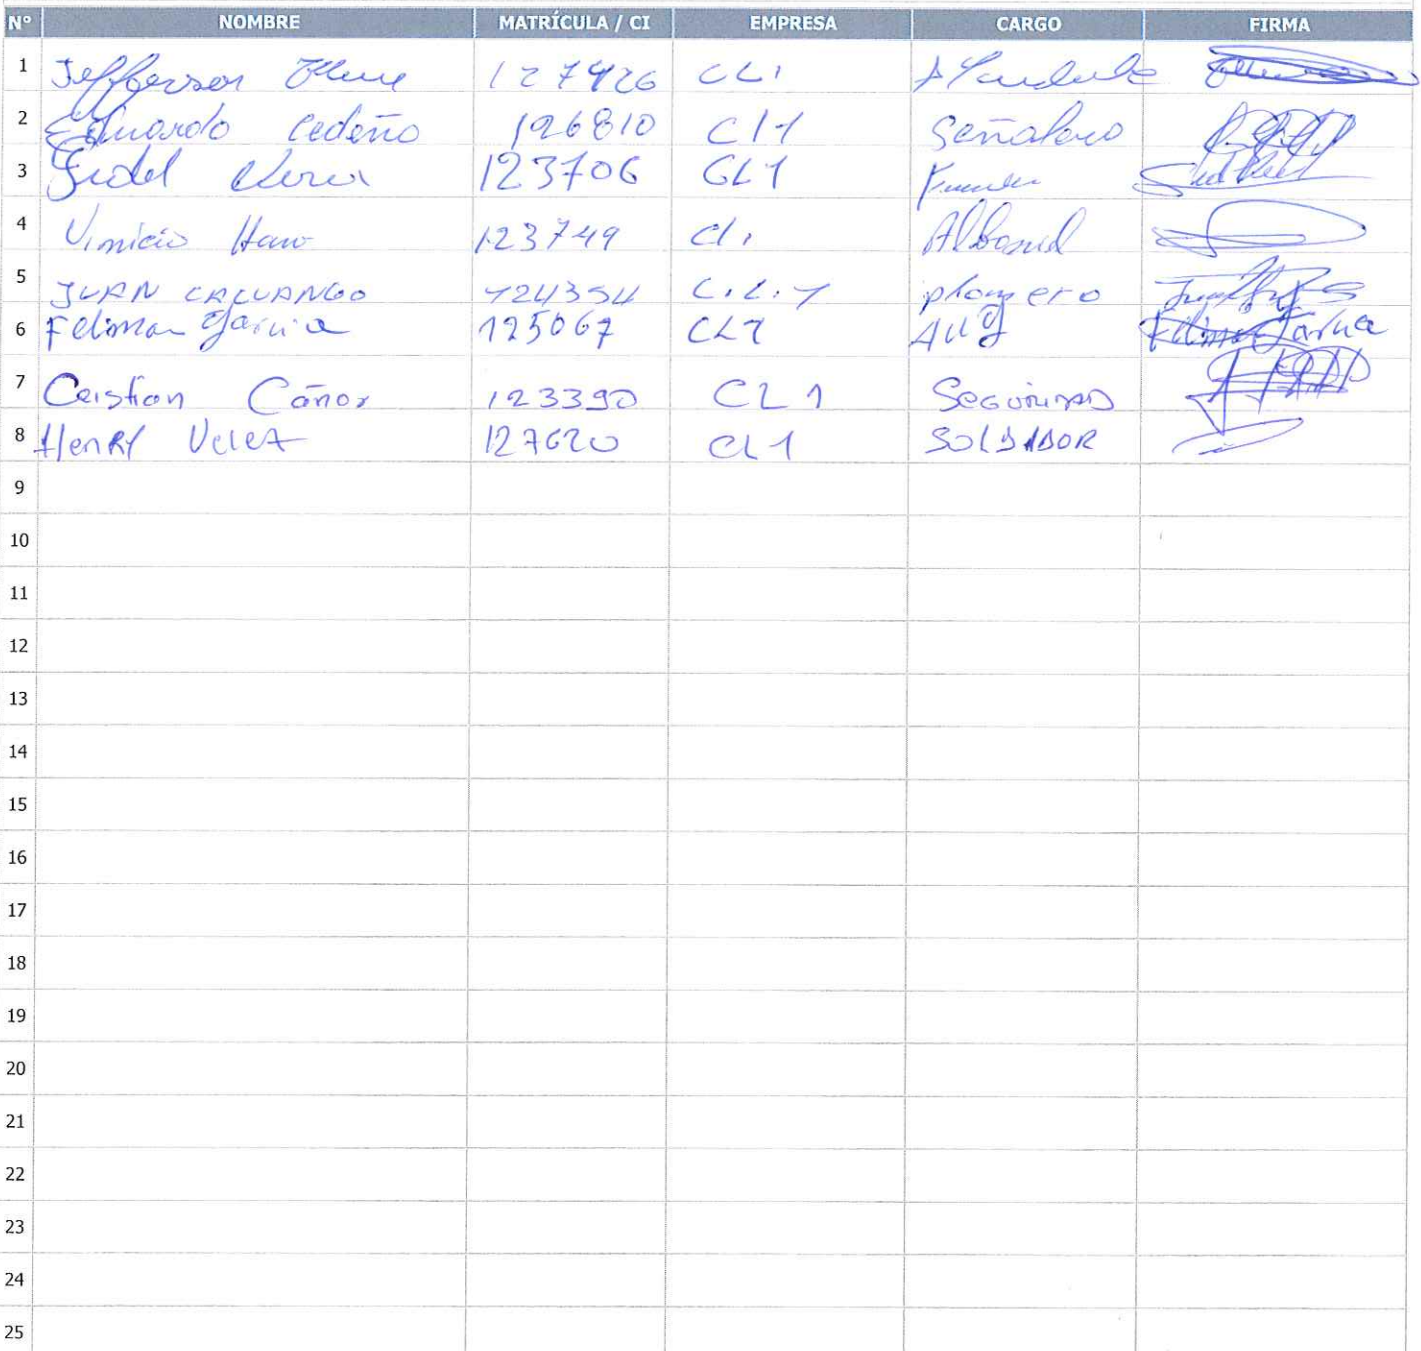 N° NOMBRE MATRÍCULA / CI EMPRESA CARGO FIRMA
1 Jefferson 127426 CL1
2 Eduardo Cedeño 126810 Cl1 Señalero
3 Fidel 123706 GL1
4 Vinicio Haro 123749 Cl1 Albanil
5 JUAN CACUANGO 124354 C.L.1 plomero
6 Felimon Garcia 125067 CL1
7 Cristian Cañar 123390 CL1 SEGURIDAD
8 HenRy Velez 127620 CL1 SOLDADOR
9
10
11
12
13
14
15
16
17
18
19
20
21
22
23
24
25